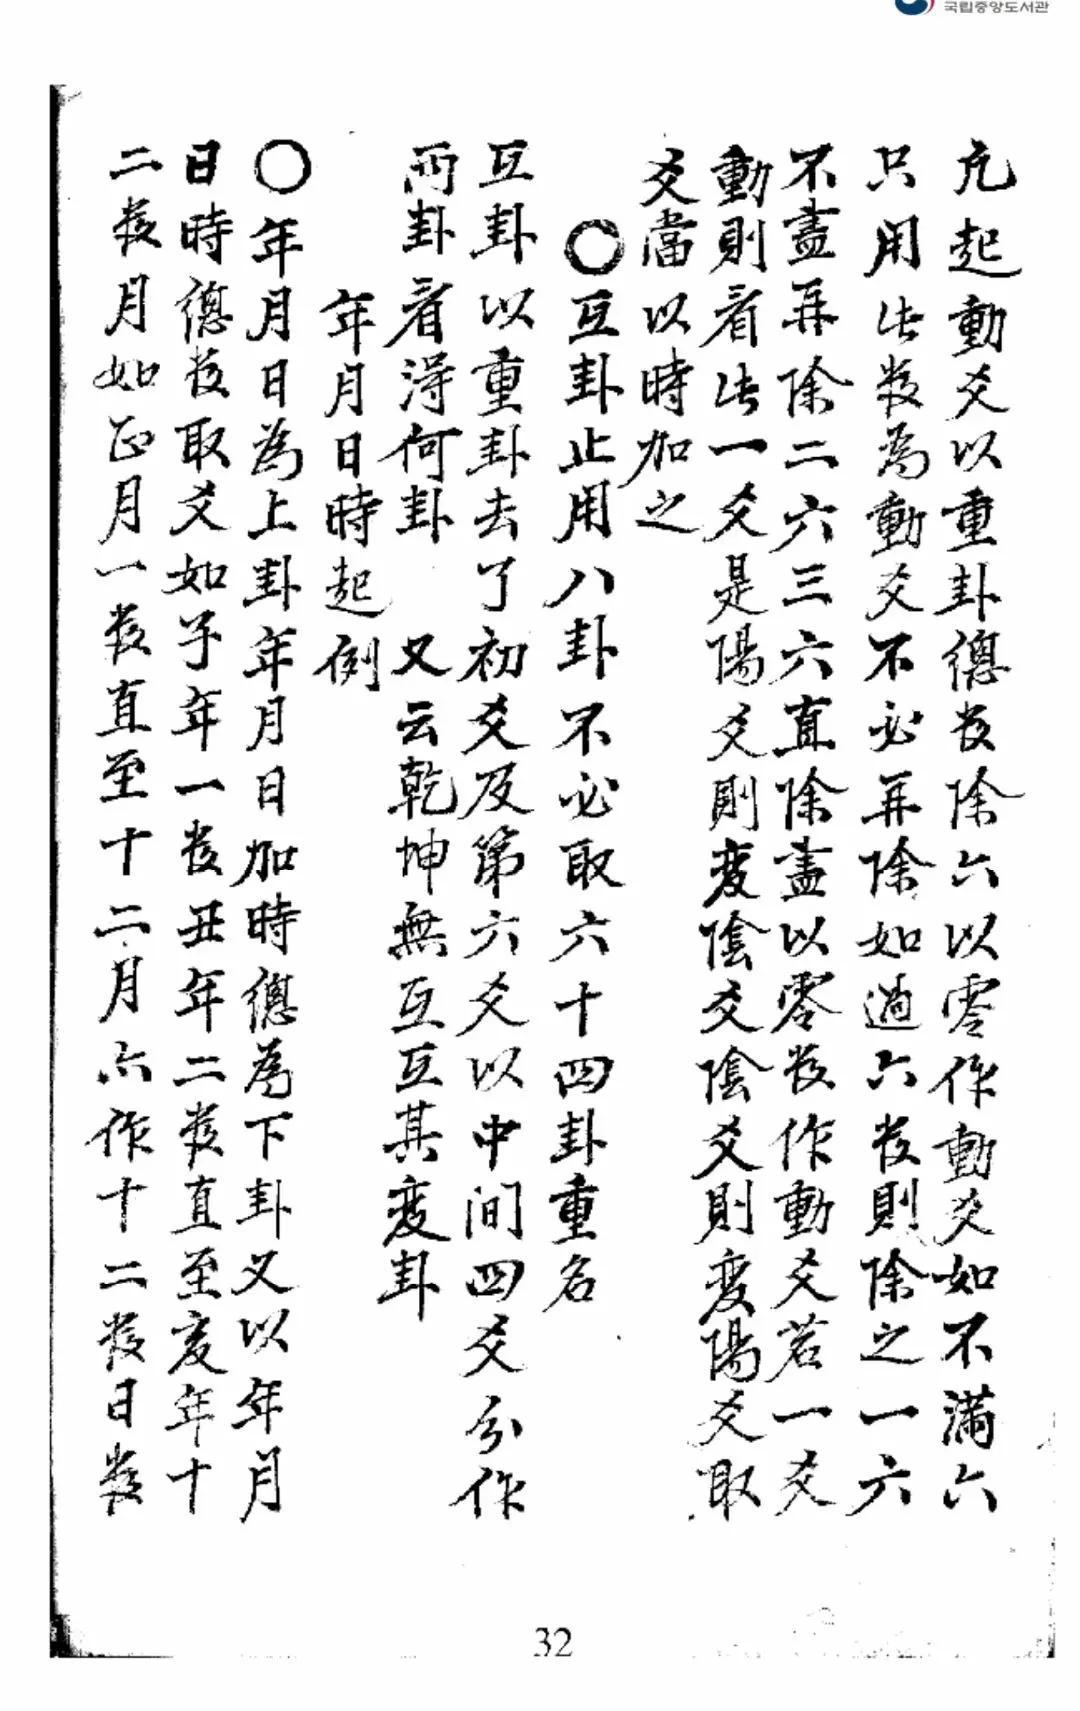 국립중앙도서관
凢起動爻以重卦緫数除六以零作動爻如不滿六
只用此数為動爻不必再除如過六数則除之一六
不盡再除二六三六直除盡以零数作動爻若一爻
動則看此一爻是陽爻則変陰爻陰爻則変陽爻取
爻當以時加之
〇互卦止用八卦不必取六十四卦重名
互卦以重卦去了初爻及第六爻以中间四爻分作
兩卦看淂何卦 又云乾坤無互互其変卦
年月日時起例
〇年月日為上卦年月日加時緫為下卦又以年月
日時緫数取爻如子年一数丑年二数直至亥年十
二数月如正月一数直至十二月亦作十二数日数
32